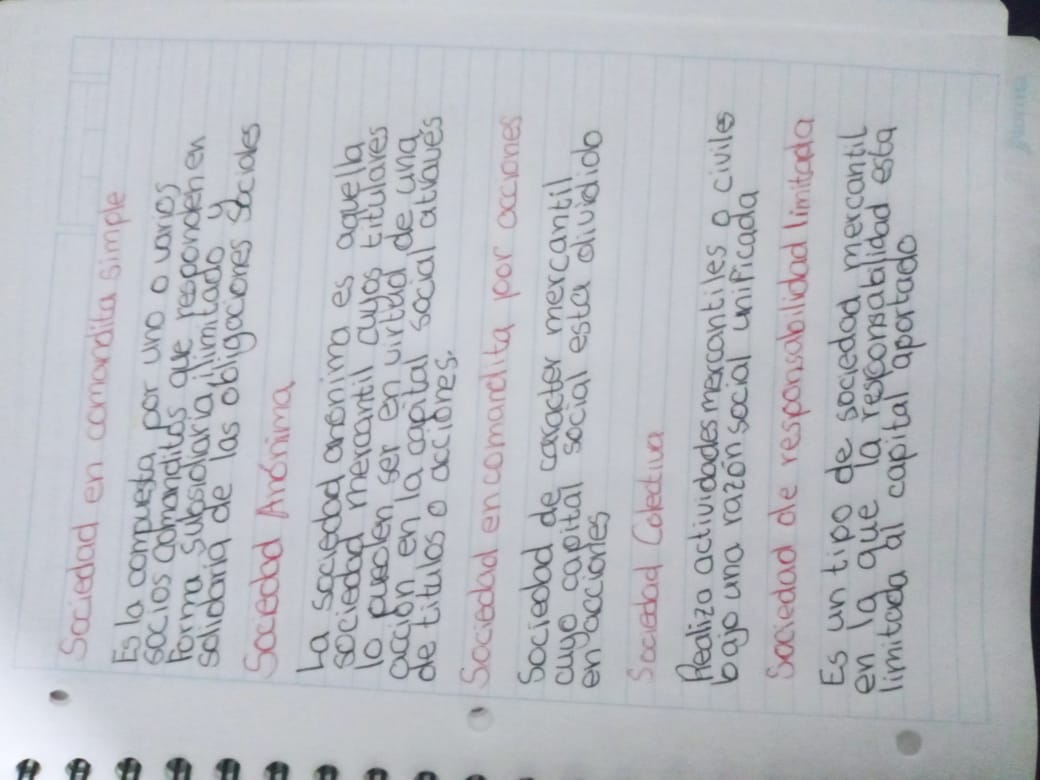 Sociedad en comandita simple
Es la compuesta por uno o varios
socios comanditos que responden en
forma subsidiaria, ilimitado y
solidaria de las obligaciones sociales
Sociedad Anónima
La sociedad anónima es aquella
sociedad mercantil cuyos titulares
lo pueden ser en virtud de una
acción en la capital social atraves
de titulos o acciones.
Sociedad en comandita por acciones
Sociedad de caracter mercantil
cuyo capital social esta dividido
en acciones
Sociedad Colectiva
Realiza actividades mercantiles o civiles
bajo una razón social unificada
Sociedad de responsabilidad limitada
Es un tipo de sociedad mercantil
en la que la responsabilidad esta
limitada al capital aportado